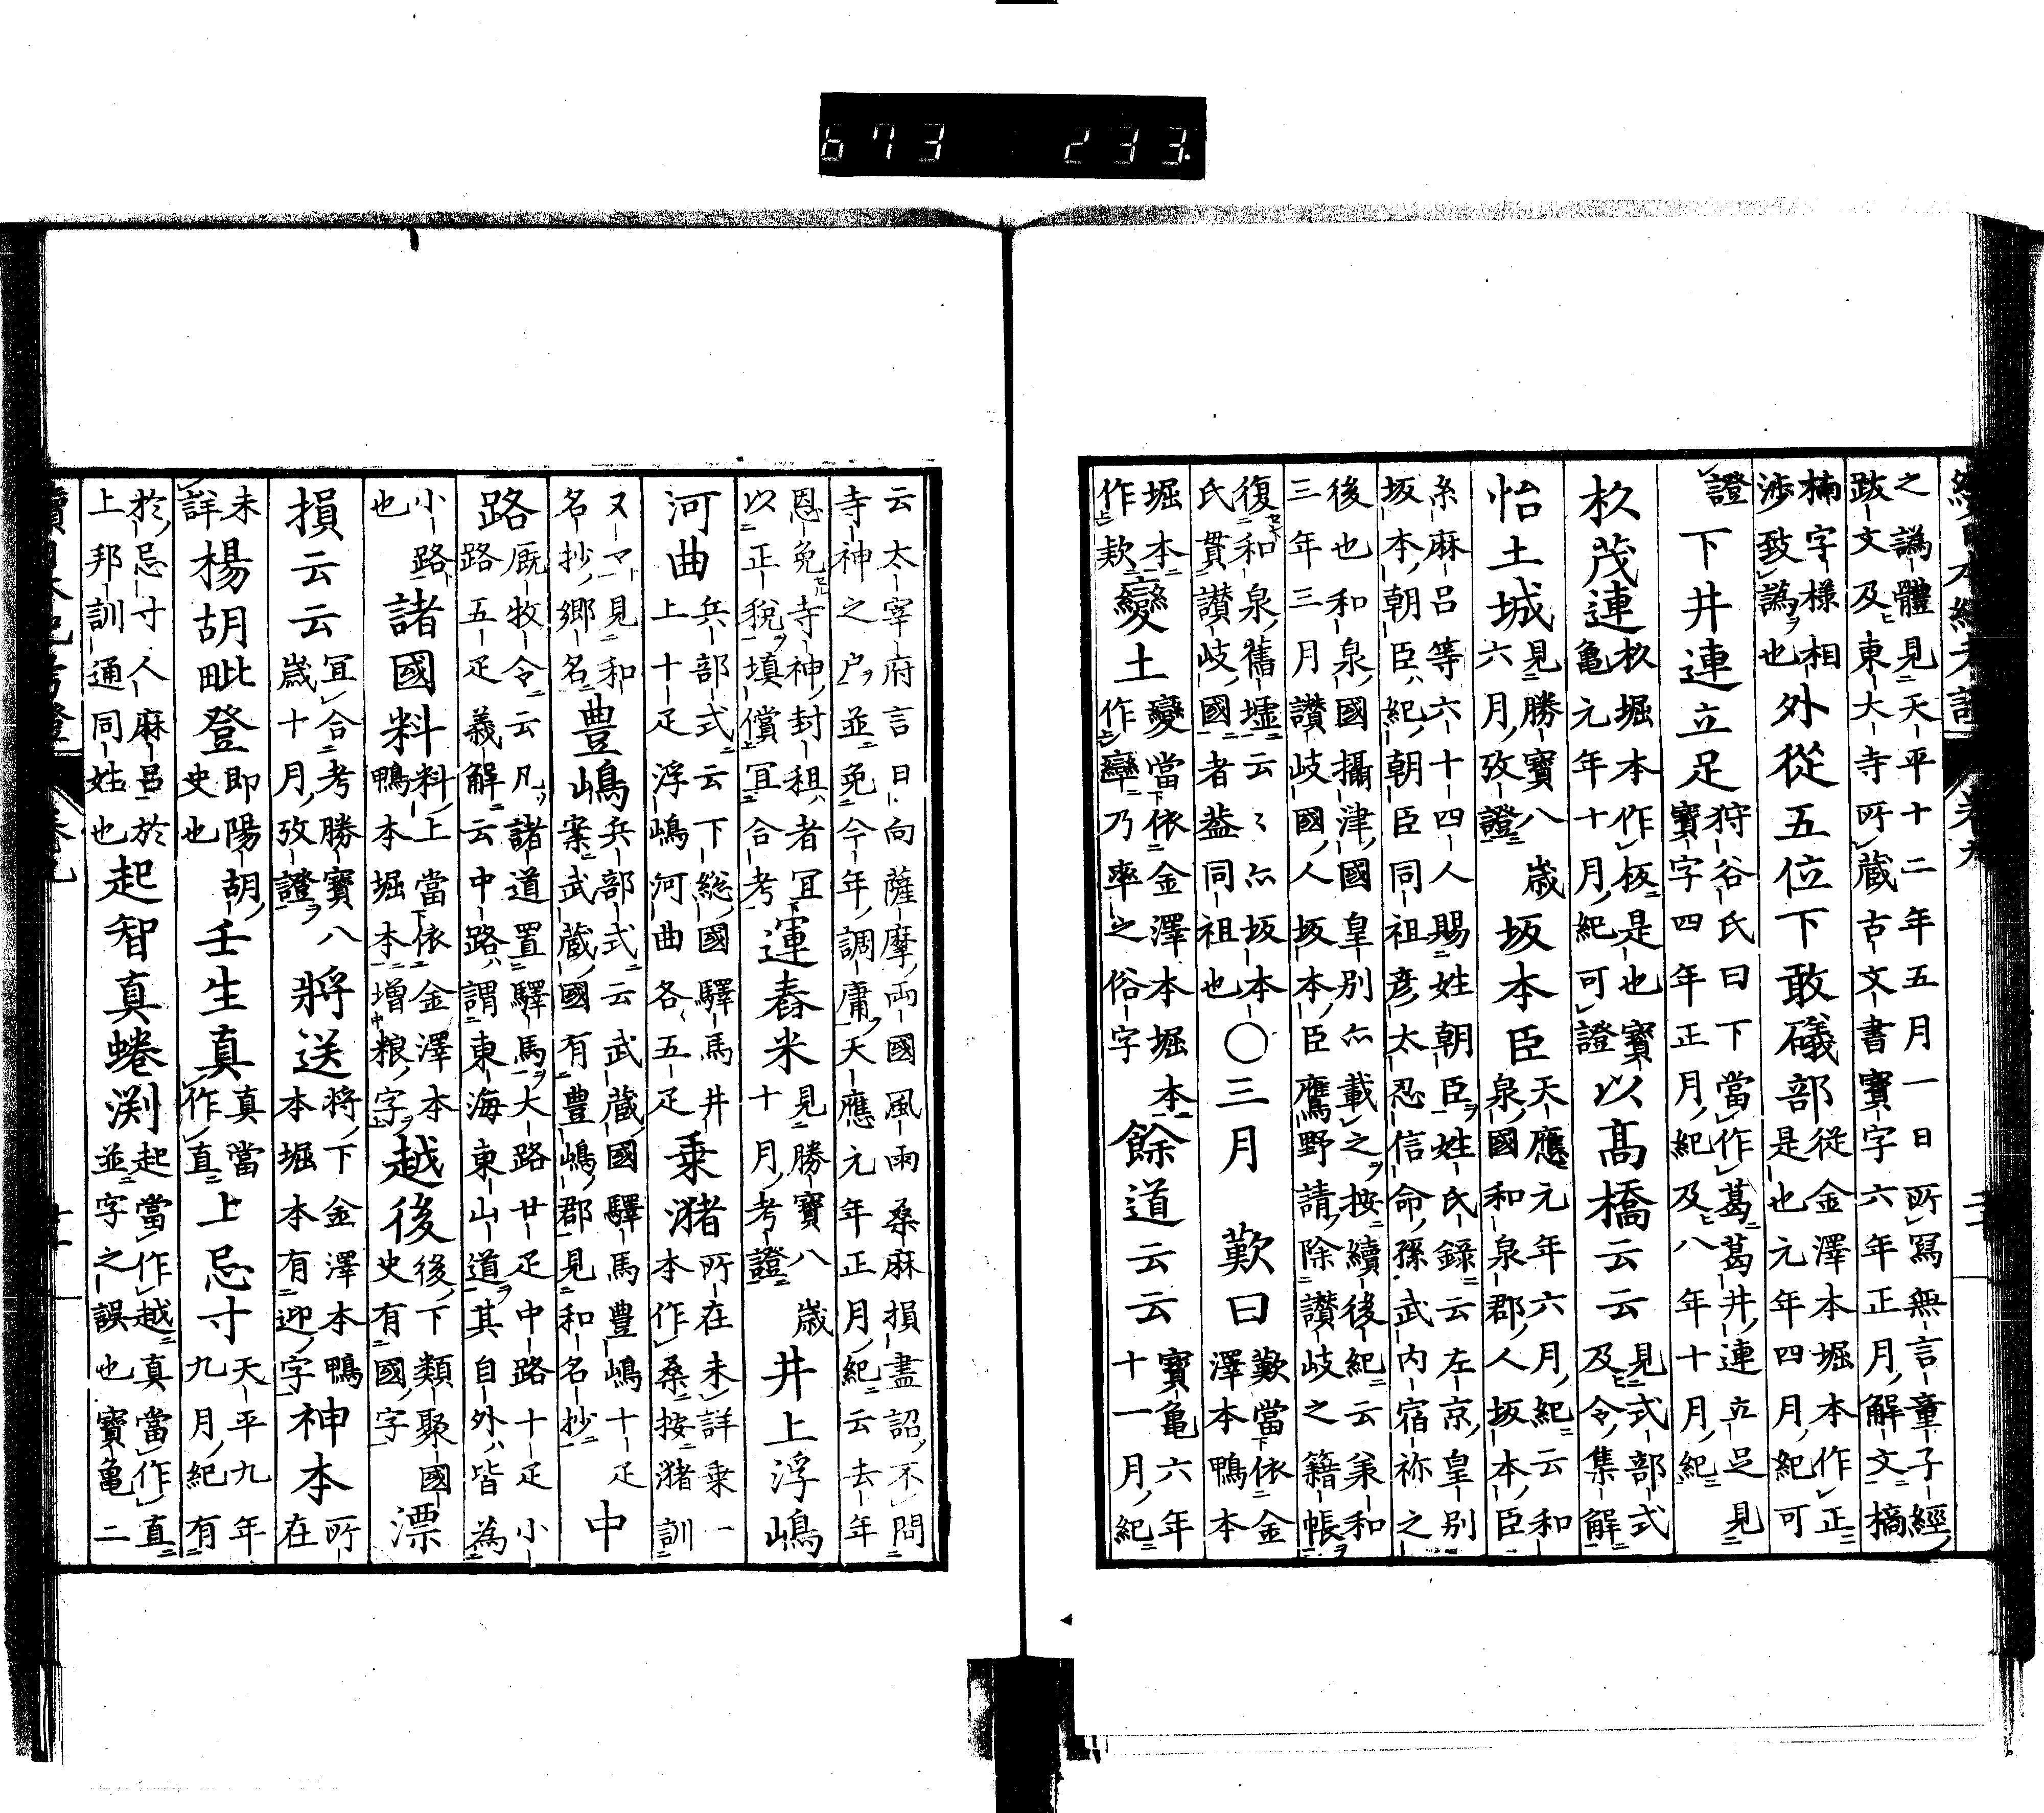 673 233.
之譌體見天平十二年五月一日所寫無言童子經
跋文及東大寺所藏古文書寶字六年正月解文摘
楠字樣相
涉致譌也
外從五位下敢礒部
從金澤本堀本作正
是也元年四月紀可
證
下井連立足
狩谷氏曰下當作葛葛井連立足見
寶字四年正月紀及八年十月紀
杦茂連
杦堀本作板是也寶
亀元年十月紀可證
以髙橋云云
見式部式
及令集解
怡土城
見勝寶八歳
六月攷證
坂本臣
天應元年六月紀云和
泉國和泉郡人坂本臣
糸麻呂等六十四人賜姓朝臣姓氏錄云左京皇別
坂本朝臣紀朝臣同祖彦太忍信命孫武内宿祢之
後也和泉國攝津國皇別亦載之按續後紀云承和
三年三月讃岐國人坂本臣鷹野請除讃岐之籍帳
復和泉舊墟云〻亦坂本
氏貫讃岐國者盖同祖也
〇三月
歎曰
歎當依金
澤本鴨本
堀本
作欵
變土
變當依金澤本堀本
作㝈乃率之俗字
餘道云云
寶亀六年
十一月紀
云太宰府言日向薩摩兩國風雨桑麻損盡詔不問
寺神之户並免今年調庸天應元年正月紀云去年
恩免寺神封租者宜
以正税填償宜合考
運舂米
見勝寶八歳
十月考證
井上浮嶋
河曲
兵部式云下総國驛馬井
上十疋浮嶋河曲各五疋
乗瀦
所在未詳乗一
本作桑按瀦訓
又マ見和
名抄鄉名
豊嶋
兵部式云武蔵國驛馬豊嶋十疋
案武蔵國有豊嶋郡見和名抄
中
路
厩牧令云凡諸道置驛馬大路廿疋中路十疋小
路五疋義解云中路謂東海東山道其自外皆為
小路
也
諸國料
料上當依金澤本
鴨本堀本增粮字
越後
後下類聚國
史有國字
漂
損云云
宜合考勝寶八
歳十月攷證
將送
將下金澤本鴨
本堀本有迎字
神本
所
在
未
詳
楊胡毗登
即陽胡
史也
壬生真
真當
作直
上忌寸
天平九年
九月紀有
於忌寸人麻呂於
上邦訓通同姓也
起智真蜷渕
起當作越真當作直
並字之誤也寶亀二